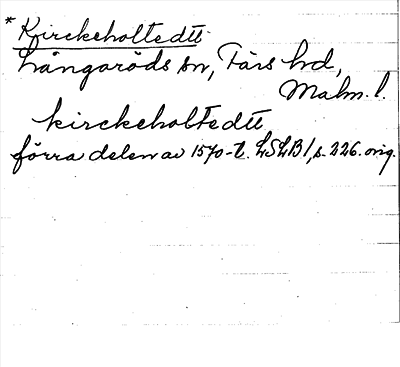 * Kirckeholtedtt
Långaröds sn, Färs hd,
Malm. l.
kirckeholtedtt
förra delen av 1570-t. LSLB 1, s. 226. orig.